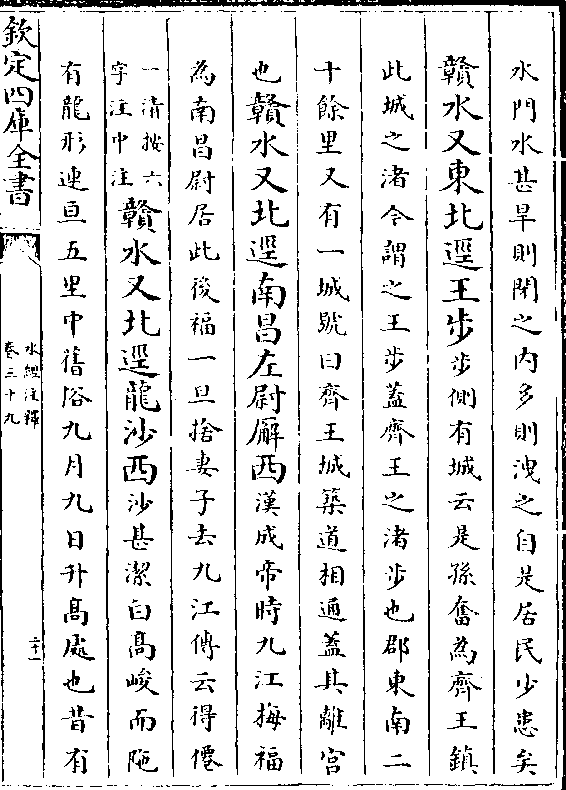 水門水甚旱則閉之内多則洩之自是居民少患矣
贛水又東北逕王步步側有城云是孫奮為齊王鎮
此城之渚今謂之王步蓋齊王之渚步也郡東南二
十餘里又有一城號曰齊王城築道相通蓋其離宮
也贛水又北逕南昌左尉廨西漢成帝時九江梅福
為南昌尉居此後福一旦捨妻子去九江傳云得僊
一清按六
字注中注
贛水又北逕龍沙西沙甚潔白高峻而陁
有龍形連亘五里中舊俗九月九日升高處也昔有
欽定四庫全書
水經注釋
卷三十九
二十一